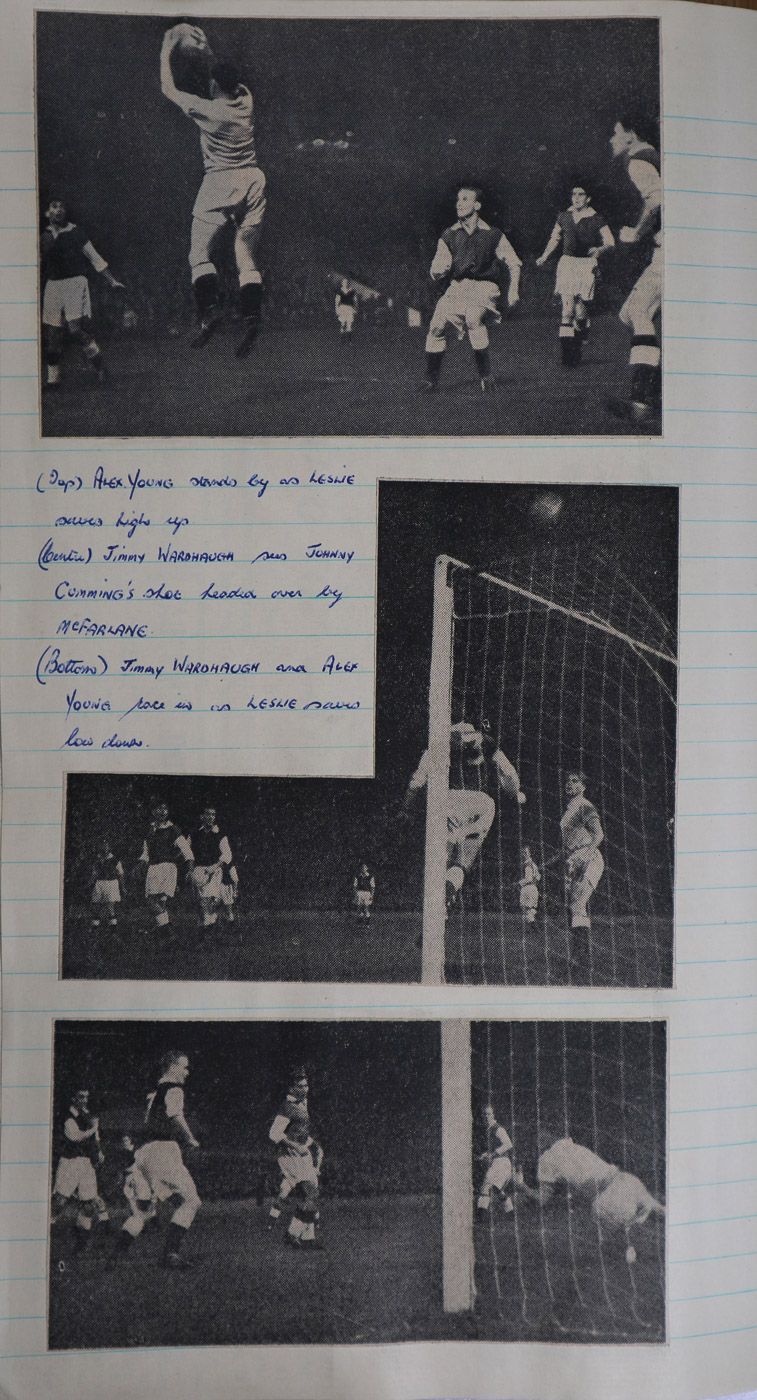 (Top) ALEX. YOUNG stands by as LESLIE
saves high up
(Centre) Jimmy WARDHAUGH sees JOHNNY
CUMMING'S shot headed over by
McFARLANE.
(Bottom) Jimmy WARDHAUGH and ALEX
YOUNG race in as LESLIE saves
low down.